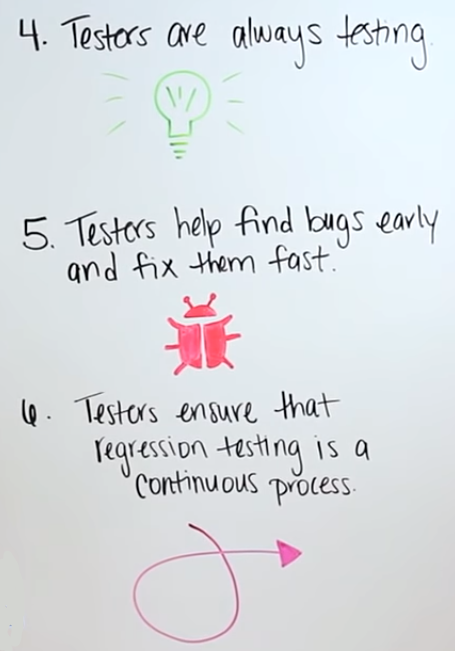 4. Testers are always testing.
5. Testers help find bugs early
and fix them fast.
6. Testers ensure that
regression testing is a
continuous process.